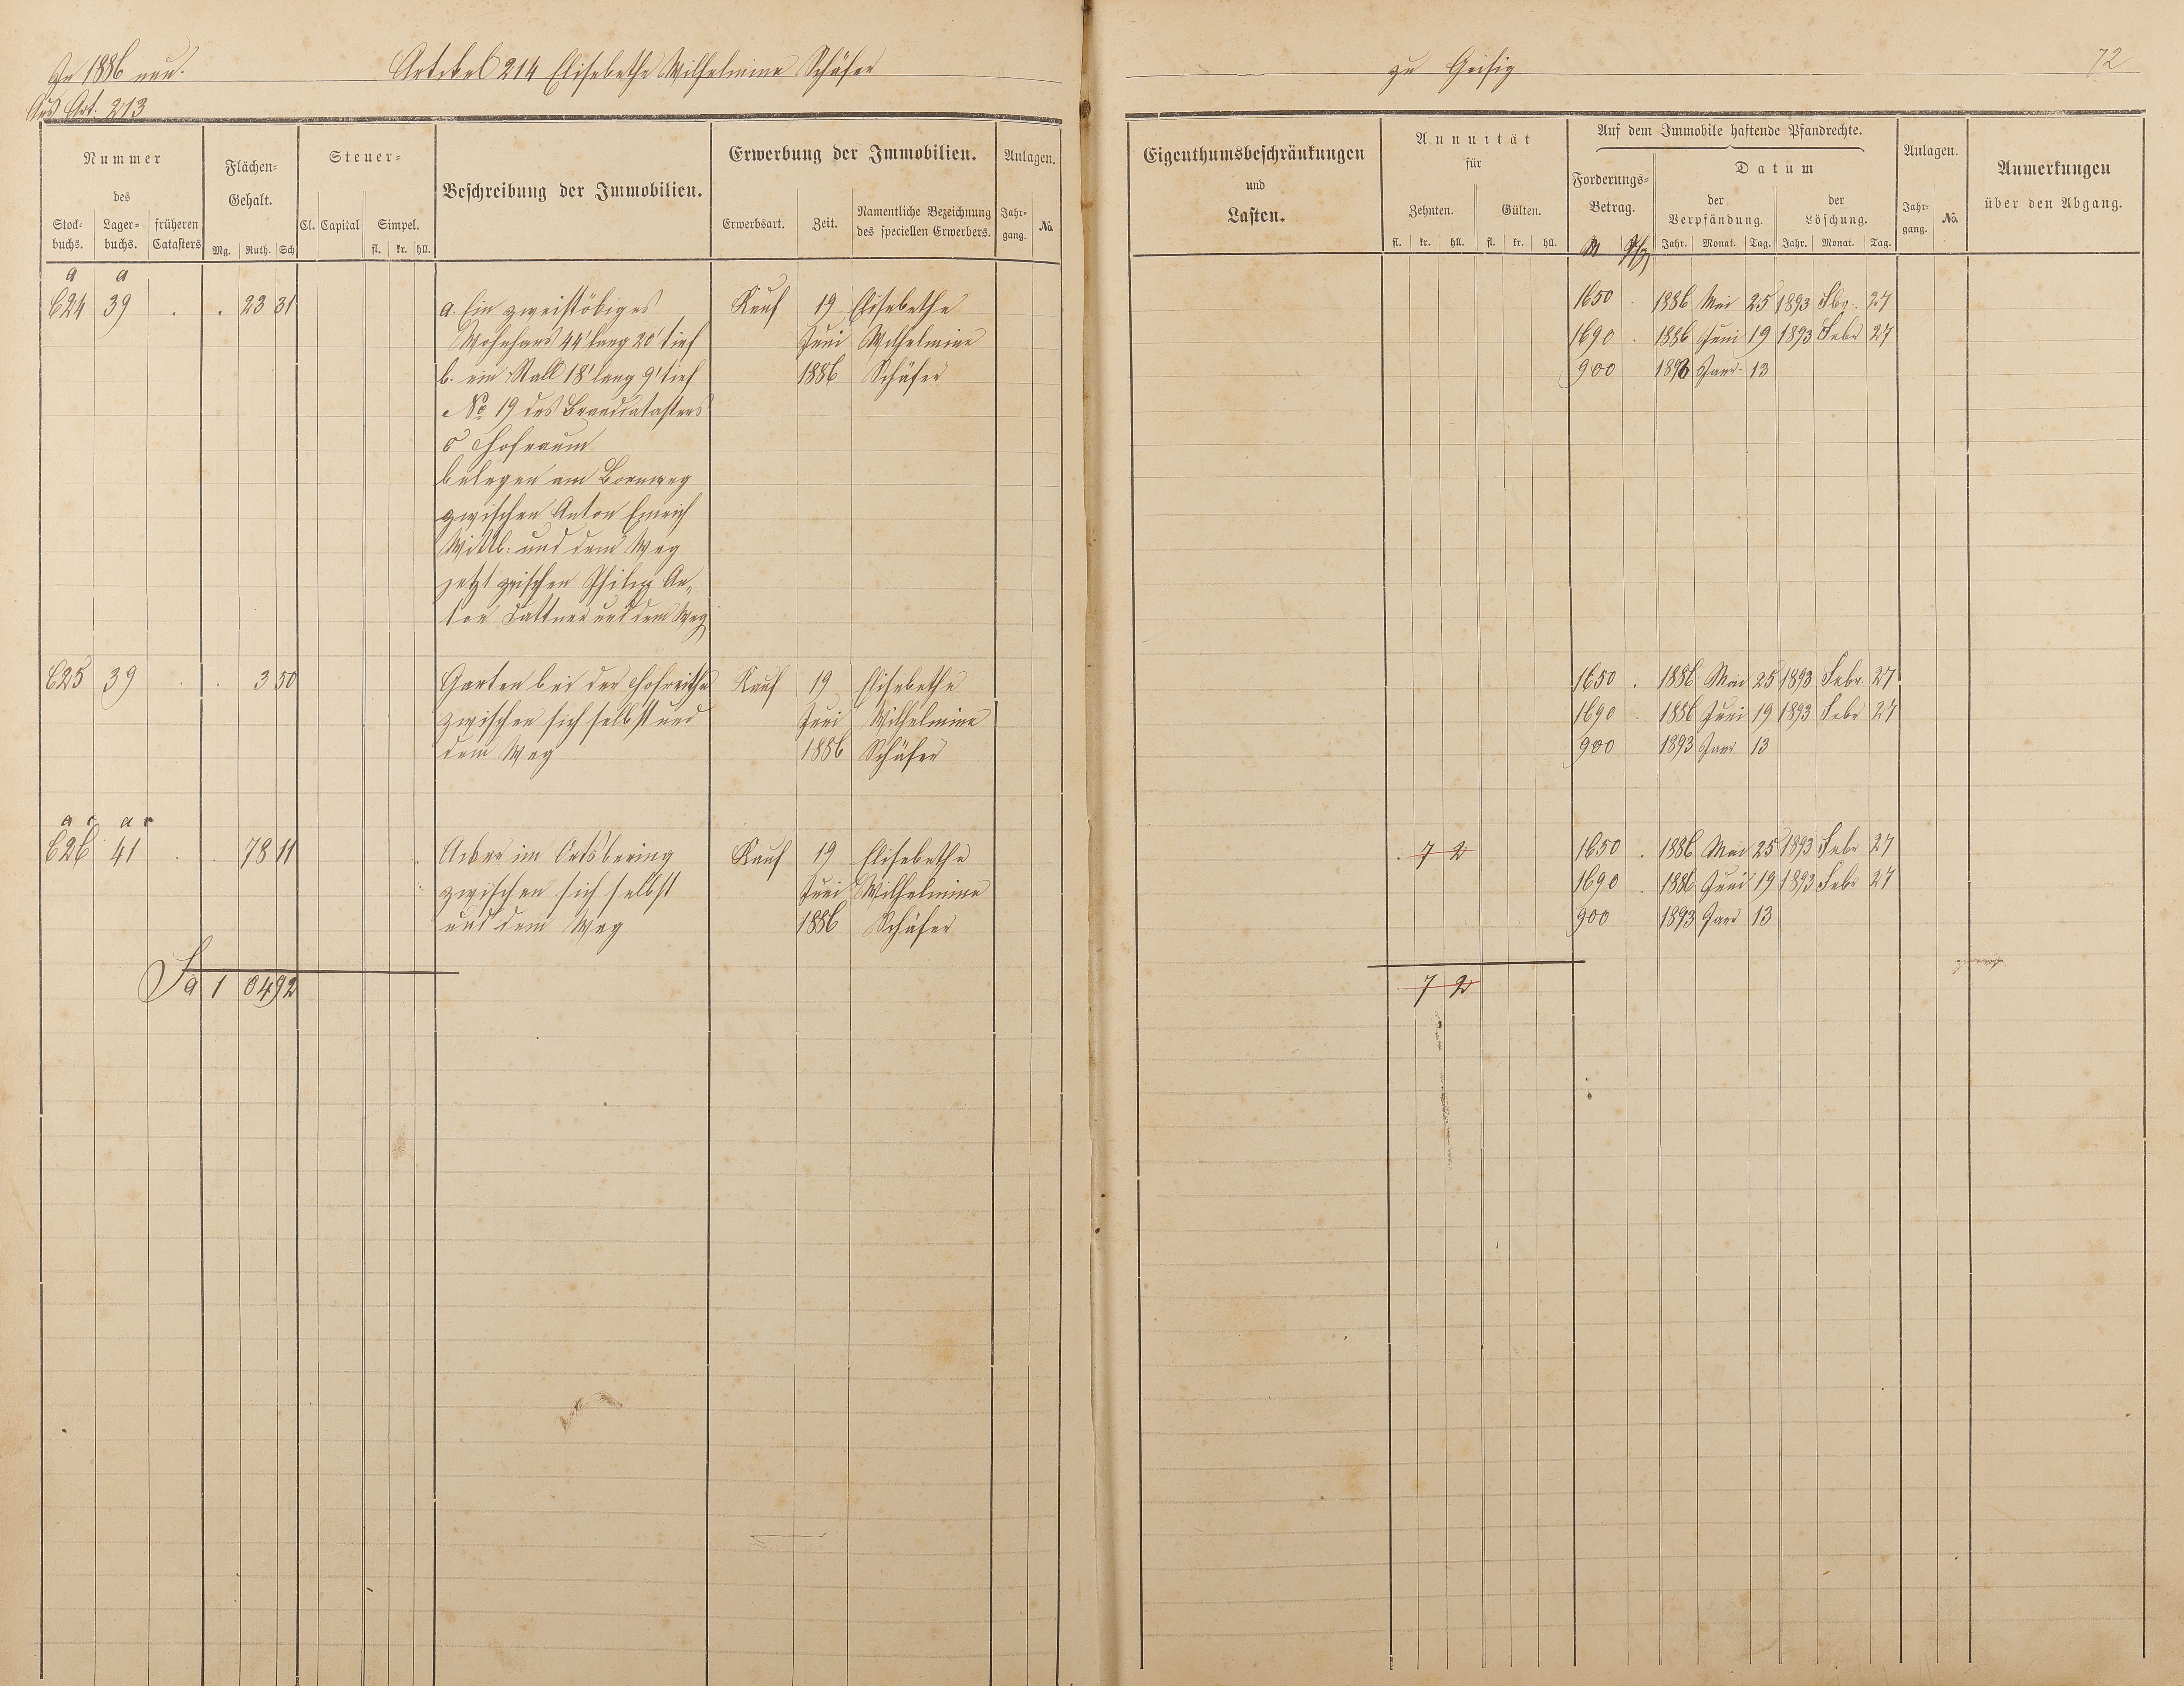 In 1886 neu.
Artikel 214 Elisabethe Wilhelmine Schäfer
Aus Art. 213
zu Geisig
72
Nummer
des
Stock-buchs.
Lager-buchs.
früheren Catasters
Flächen-Gehalt.
Mg. Ruth. Sch
Steuer-
Cl. Capital Simpel.
fl. kr. hll.
Beschreibung der Immobilien.
Erwerbung der Immobilien.
Erwerbsart. Zeit. Namentliche Bezeichnung des speciellen Erwerbers.
Anlagen.
Jahr-gang. No.
Eigenthumsbeschränkungen
und
Lasten.
Annuität
für
Zehnten. Gülten.
fl. kr. hll. fl. kr. hll.
Auf dem Immobile haftende Pfandrechte.
Forderungs-Betrag.
M Pfg
Datum
der Verpfändung. der Löschung.
Jahr. Monat. Tag. Jahr. Monat. Tag.
Anlagen.
Jahr-gang. No.
Anmerkungen
über den Abgang.
a a
624 39 . . 23 31 a. Ein zweistökiges Kauf 19 Elisabethe 1650 . 1886 Mai 25 1893 Fbr. 27
Wohnhaus 44' lang 20' tief Juni Wilhelmine 1690 . 1886 Juni 19 1893 Febr 27
b. ein Stall 18' lang 9' tief 1886 Schäfer 900 1893 Janr. 13
No 19 des Brandcatasters
c Hofraum
belegen am Bornweg
zwischen Anton Emerich
Wittb. und dem Weg
jetzt zwischen Philipp An-
ton Lattner und dem Weg
625 39 . . 3 50 Garten bei der Hofreithe Kauf 19 Elisabethe 1650 . 1886 Mai 25 1893 Febr. 27
zwischen sich selbst und Juni Wilhelmine 1690 . 1886 Juni 19 1893 Febr 27
dem Weg 1886 Schäfer 900 1893 Janr 13
626 41 . . 78 11 Acker im Ortsbering Kauf 19 Elisabethe . 7 2 1650 . 1886 Mai 25 1893 Febr 27
zwischen sich selbst Juni Wilhelmine 1690 . 1886 Juni 19 1893 Febr 27
und dem Weg 1886 Schäfer 900 1893 Janr 13
Sa 1 04 92 7 2